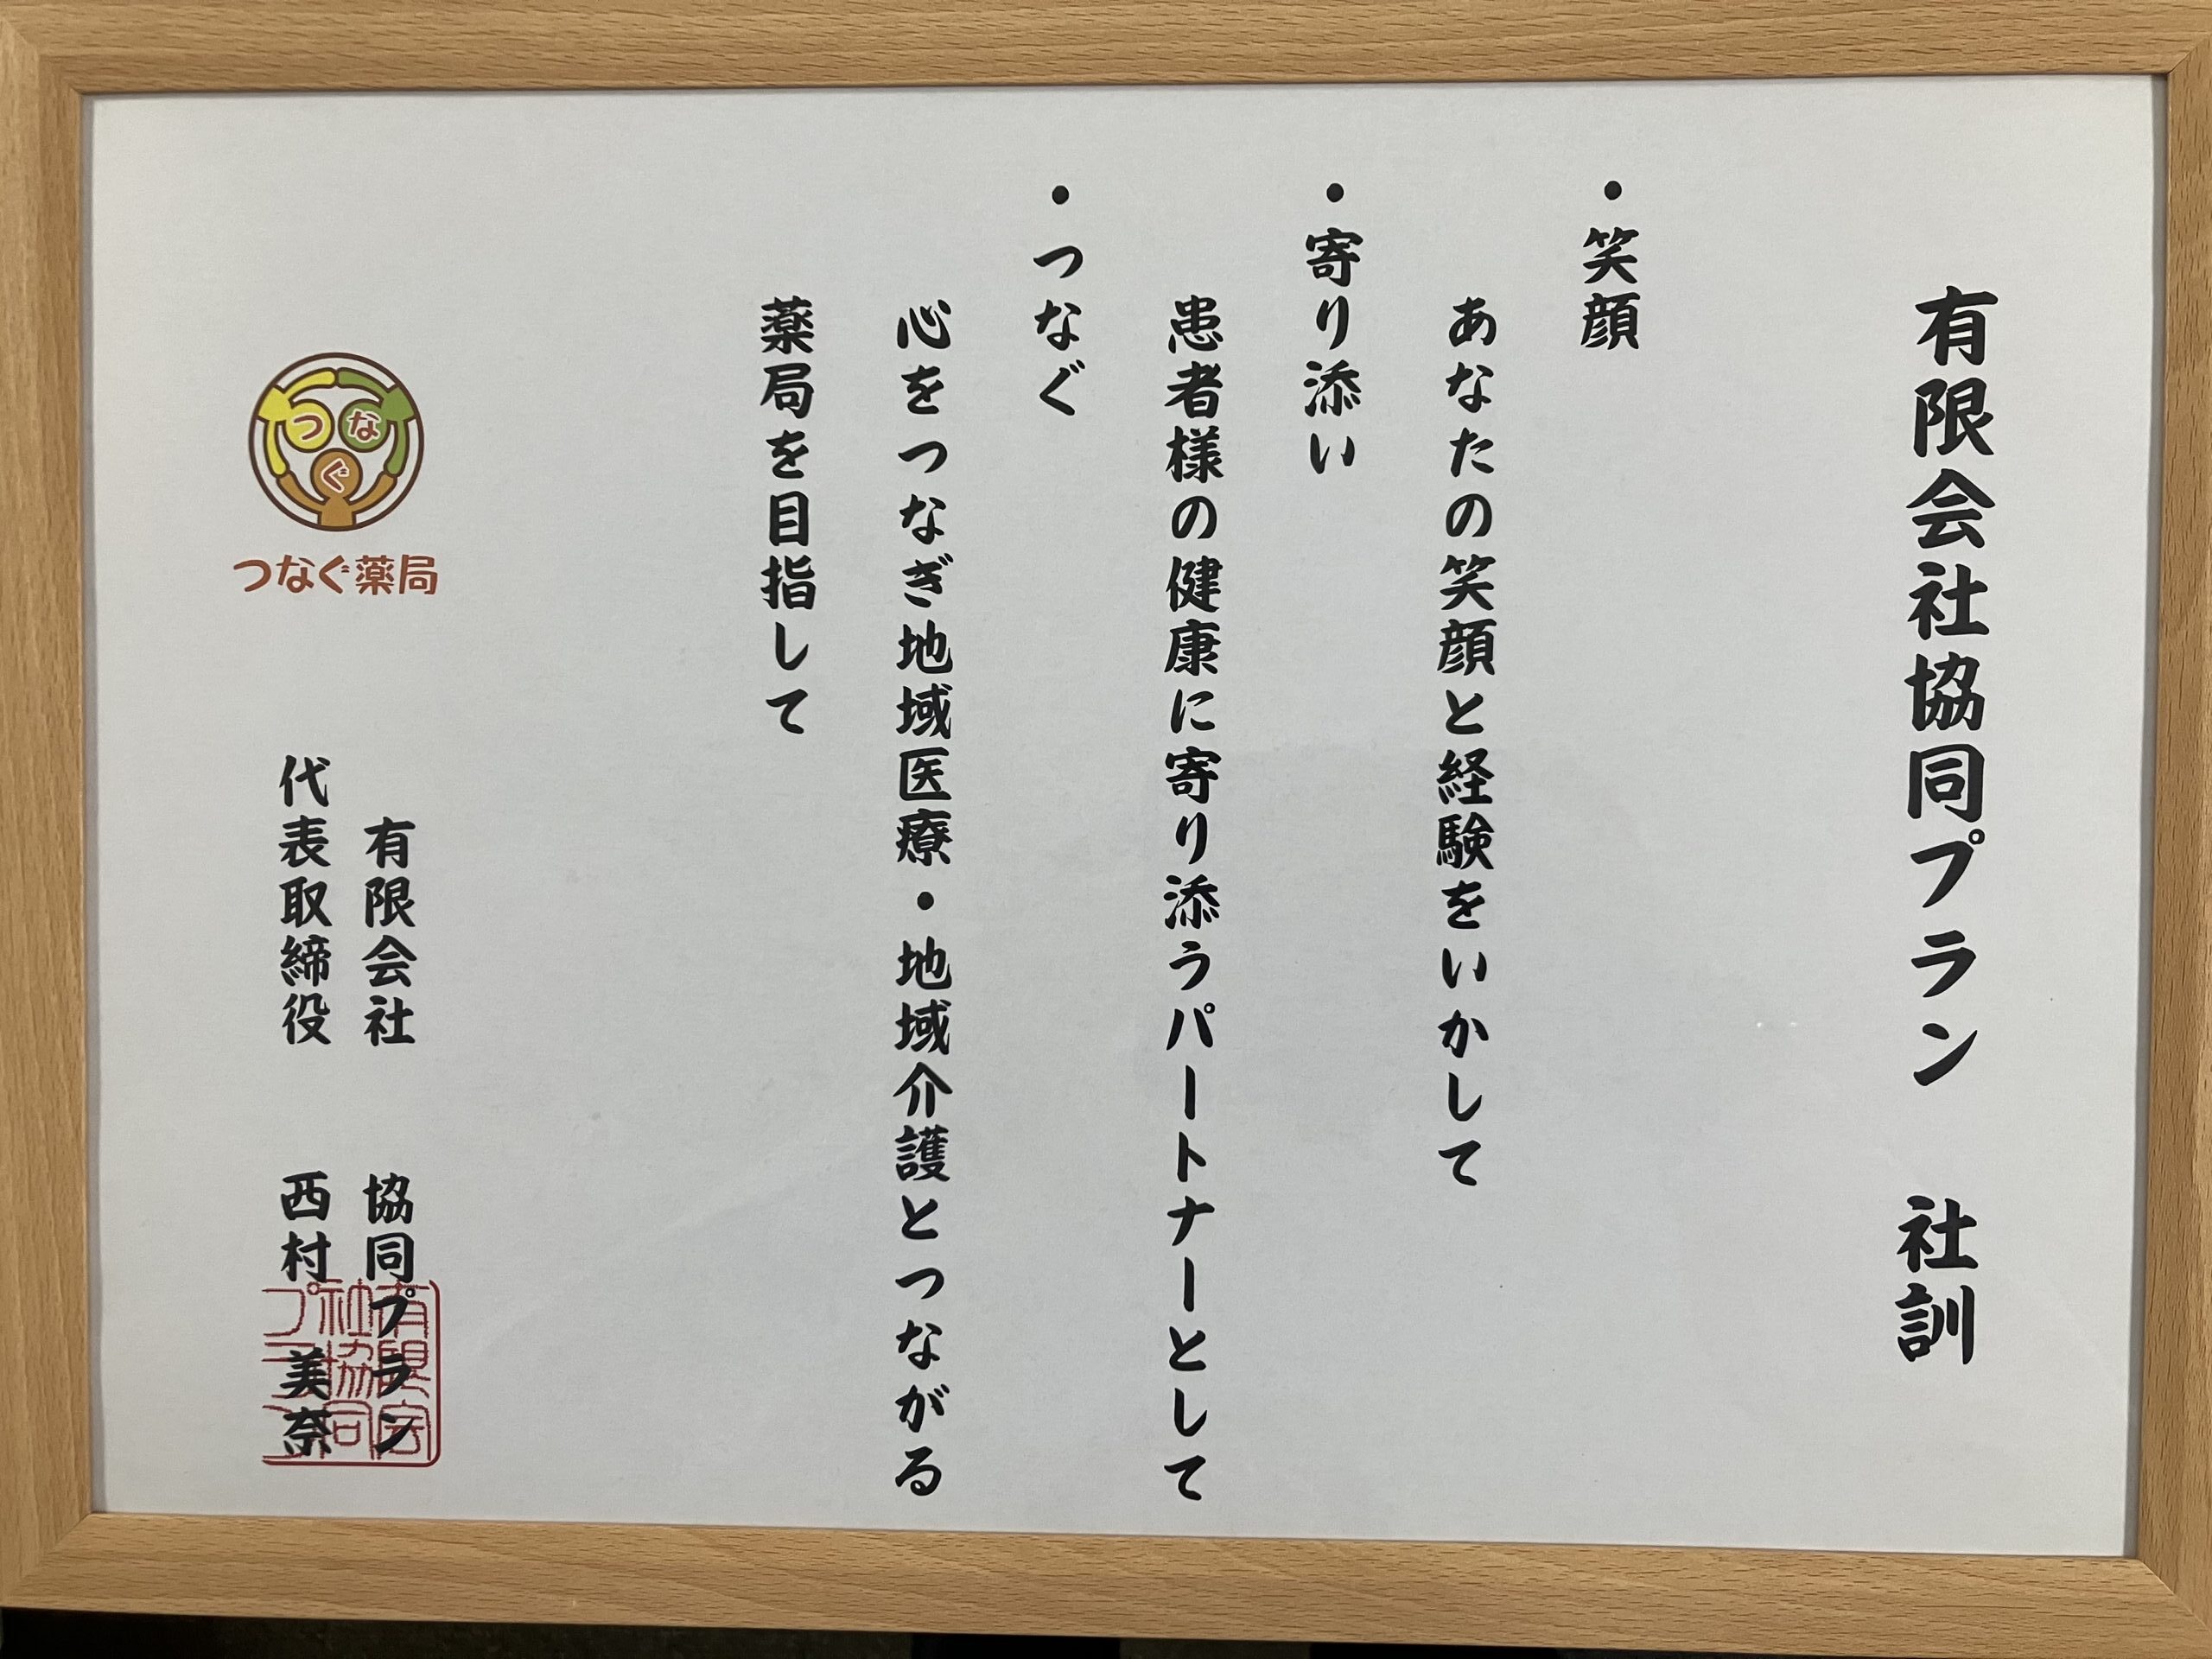 有限会社協同プラン　社訓
・笑顔
あなたの笑顔と経験をいかして
・寄り添い
患者様の健康に寄り添うパートナーとして
・つなぐ
心をつなぎ地域医療・地域介護とつながる
薬局を目指して
つなぐ
つなぐ薬局
有限会社　協同プラン
代表取締役　西村　美奈
有限会
社協同
プラン